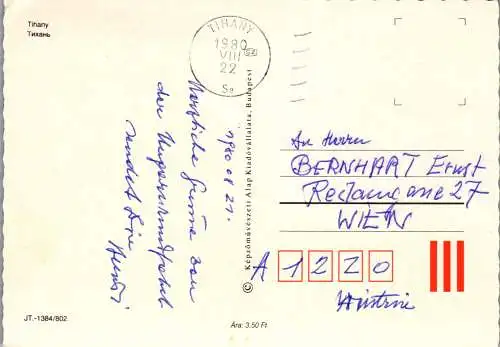 Tihany
Тихань
TIHANY
1980
VIII
22
1980 08 21.
Herzliche Grüße von
der Ungarnrundfahrt
sendet Dir
© Képzőművészeti Alap Kiadóvállalata, Budapest
An Herrn
BERNHART Ernst
27
WIEN
A 1220
Austria
JT.-1384/802
Ára: 3.50 Ft